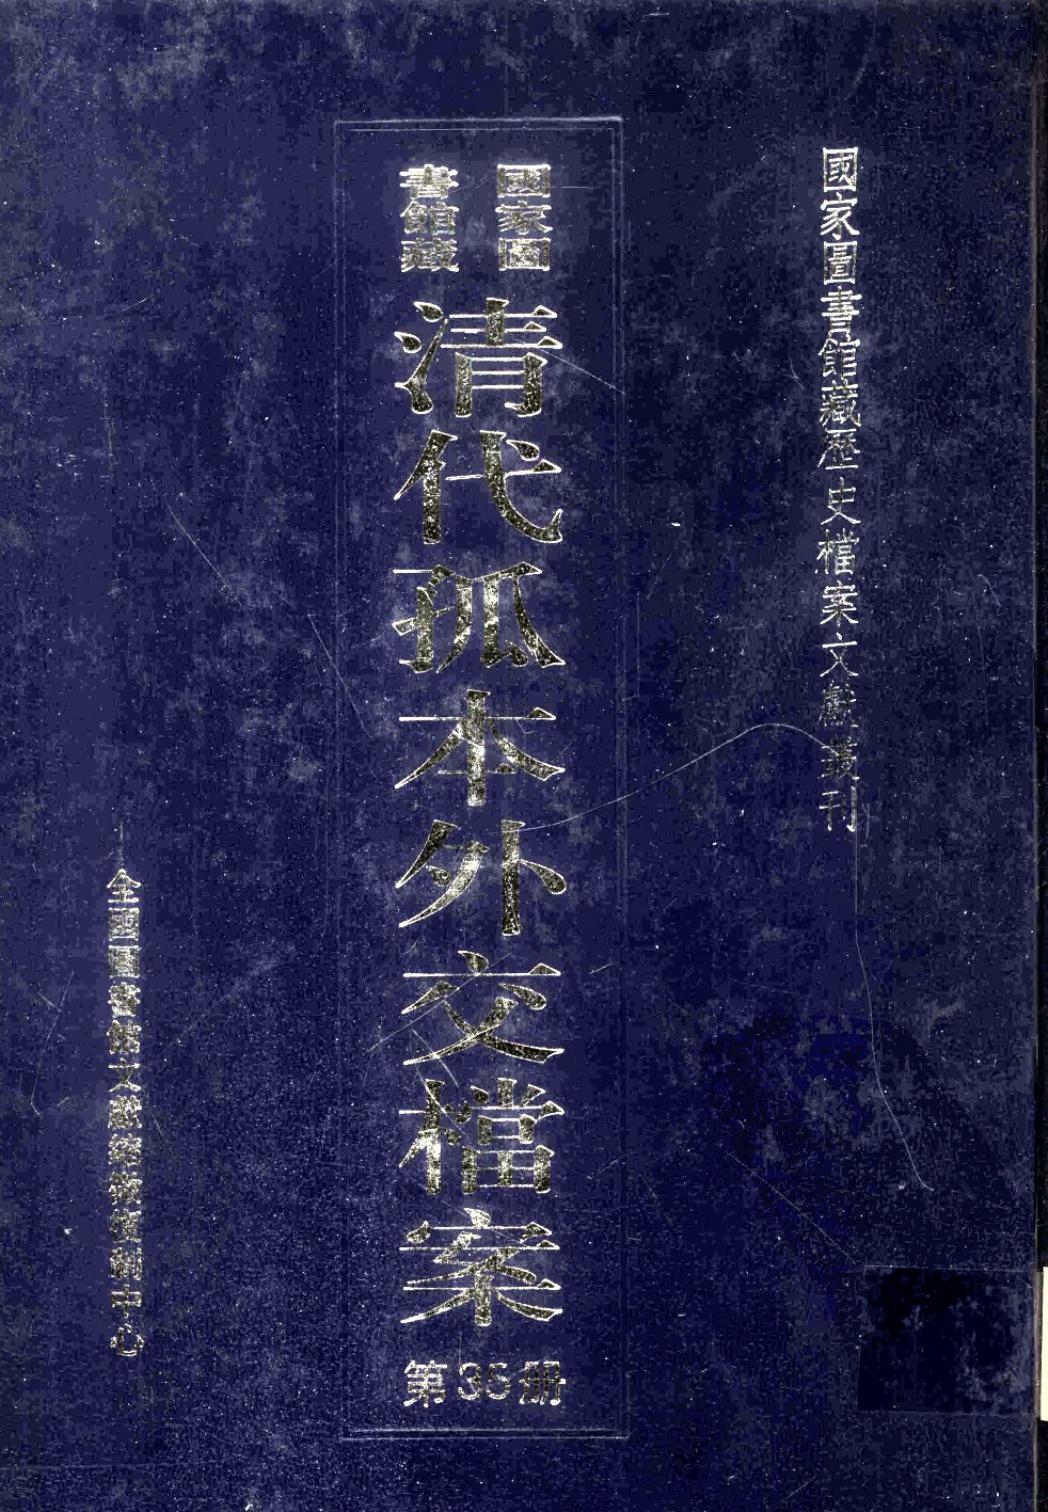 國家圖書館藏歷史檔案文獻叢刊
國家圖
書館藏
清代孤本外交檔案
第35册
全國圖書館文獻縮微復制中心